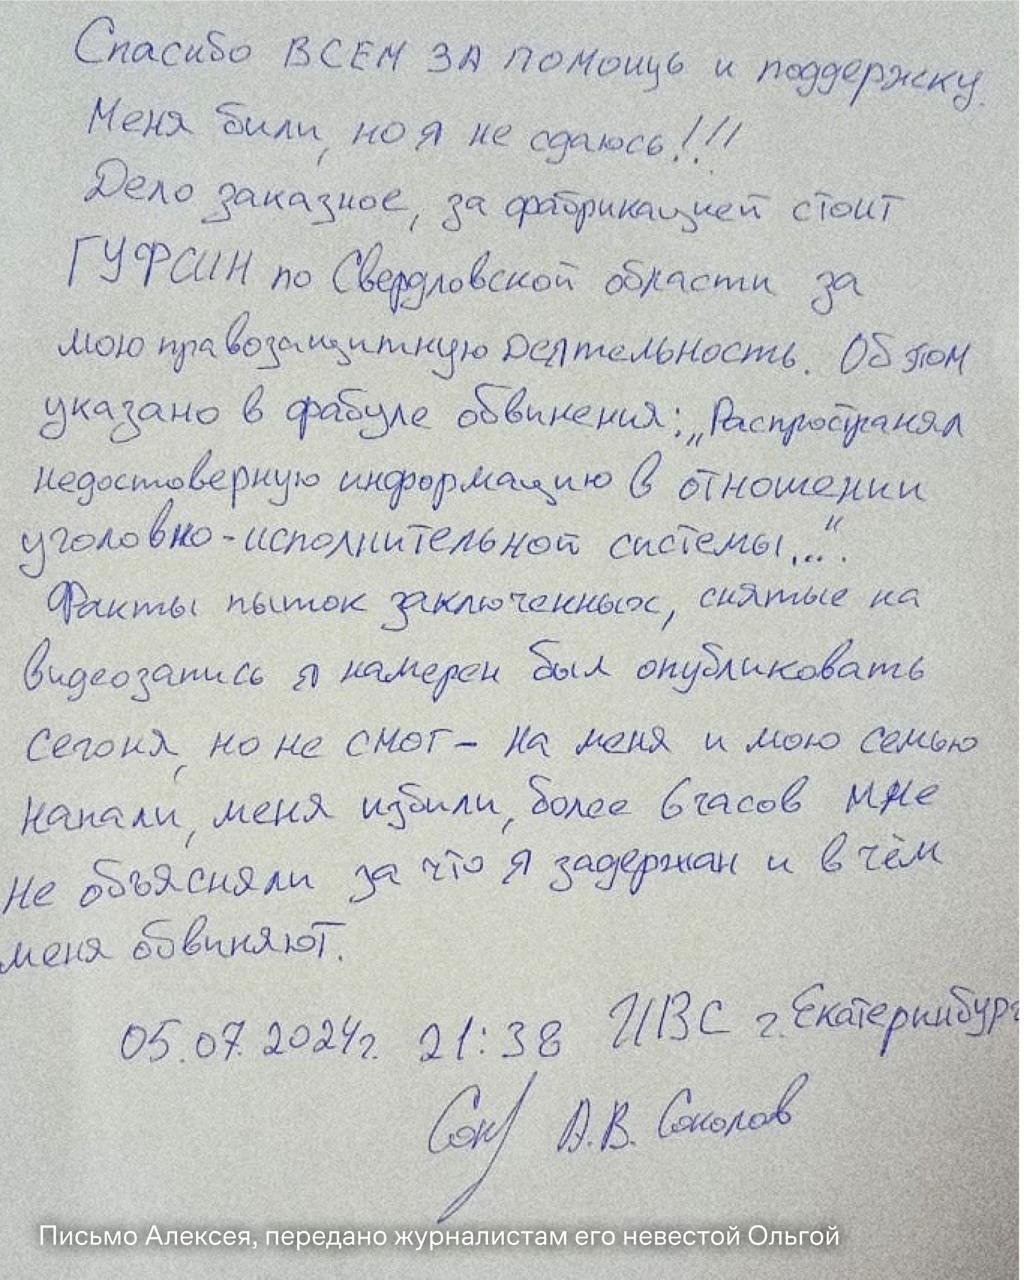 Спасибо ВСЕМ ЗА помощь и поддержку.
Меня били, но я не сдаюсь!!!
Дело заказное, за фабрикацией стоит
ГУФСИН по Свердловской области за
мою правозащитную деятельность. Об этом
указано в фабуле обвинения: „Распространял
недостоверную информацию в отношении
уголовно-исполнительной системы...“.
Факты пыток заключенных, снятые на
видеозапись я намерен был опубликовать
сегоня, но не смог – на меня и мою семью
напали, меня избили, более 6 часов мне
не объясняли за что я задержан и в чём
меня обвиняют.
05.07.2024г. 21:38 ИВС г. Екатеринбург
Сок А.В. Соколов
Письмо Алексея, передано журналистам его невестой Ольгой